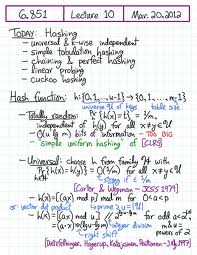 6.851 Lecture 10 Mar. 20, 2012
TODAY: Hashing
- universal & k-wise independent
- simple tabulation hashing
- chaining & perfect hashing
- linear probing
- cuckoo hashing
Hash function: h: {0,1,...,u-1} → {0,1,...,m-1}
universe U of keys table size
- Totally random: Pr{h(x)=t} = 1/m,
independent of h(y) for all x≠y∈U
- Θ(u lg m) bits of information - TOO BIG
"simple uniform hashing" of [CLRS]
- Universal: choose h from family H with
Pr{h(x)=h(y)} = O(1/m) for all x≠y∈U
strong if ≤ 1/m
[Carter & Wegman - JCSS 1979]
- h(x) = [(ax) mod p] mod m for 0<a<p
or: vector dot product prime ≥ u = |U|
- h(x) = for odd a<
= (a·x)>>(lg u - lg m) m, u
right shift powers of 2
[Dietzfelbinger, Hagerup, Katajainen, Penttonen - J. Alg. 1997]